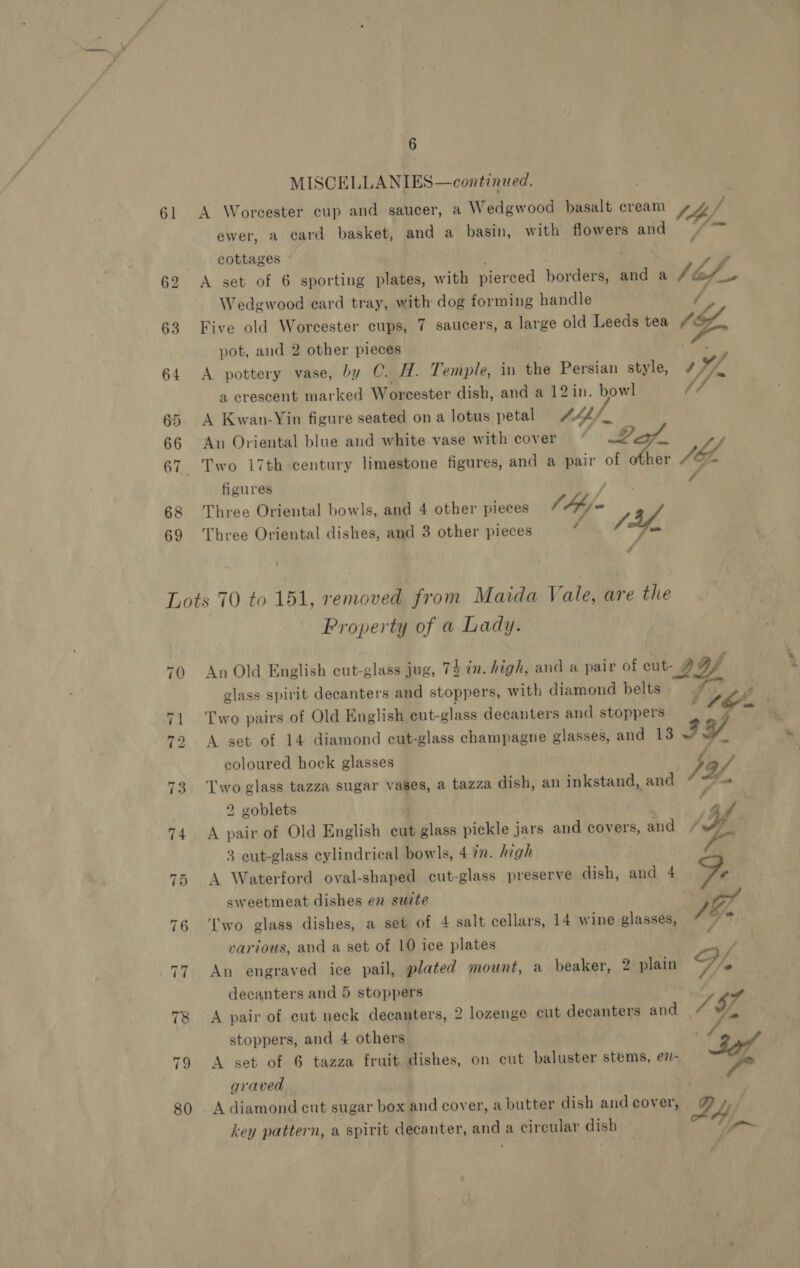 6
MISCELLANIES—continued.
61 A Worcester cup and saucer, a Wedgwood basalt cream
ewer, a card basket, and a basin, with flowers and
cottages
62 A set of 6 sporting plates, with pierced borders, and a
Wedgwood card tray, with dog forming handle
63 Five old Worcester cups, 7 saucers, a large old Leeds tea
pot, and 2 other pieces
64 A pottery vase, by C. H. Temple, in the Persian style,
a crescent marked Worcester dish, and a 12 in. bowl
65 A Kwan-Yin figure seated on a lotus petal
66 An Oriental blue and white vase with cover
67 Two 17th century limestone figures, and a pair of other
figures
68 Three Oriental bowls, and 4 other pieces
69 Three Oriental dishes, and 3 other pieces
Lots 70 to 151, removed from Maida Vale, are the
Property of a Lady.
70 An Old English cut-glass jug, 7½ in. high, and a pair of cut-
glass spirit decanters and stoppers, with diamond belts
71 Two pairs of Old English cut-glass decanters and stoppers
72 A set of 14 diamond cut-glass champagne glasses, and 13
coloured hock glasses
73 Two glass tazza sugar vases, a tazza dish, an inkstand, and
2 goblets
74 A pair of Old English cut glass pickle jars and covers, and
3 cut-glass cylindrical bowls, 4 in. high
75 A Waterford oval-shaped cut-glass preserve dish, and 4
sweetmeat dishes en suite
76 Two glass dishes, a set of 4 salt cellars, 14 wine glasses,
various, and a set of 10 ice plates
77 An engraved ice pail, plated mount, a beaker, 2 plain
decanters and 5 stoppers
78 A pair of cut neck decanters, 2 lozenge cut decanters and
stoppers, and 4 others
79 A set of 6 tazza fruit dishes, on cut baluster stems, en-
graved
80 A diamond cut sugar box and cover, a butter dish and cover,
key pattern, a spirit decanter, and a circular dish